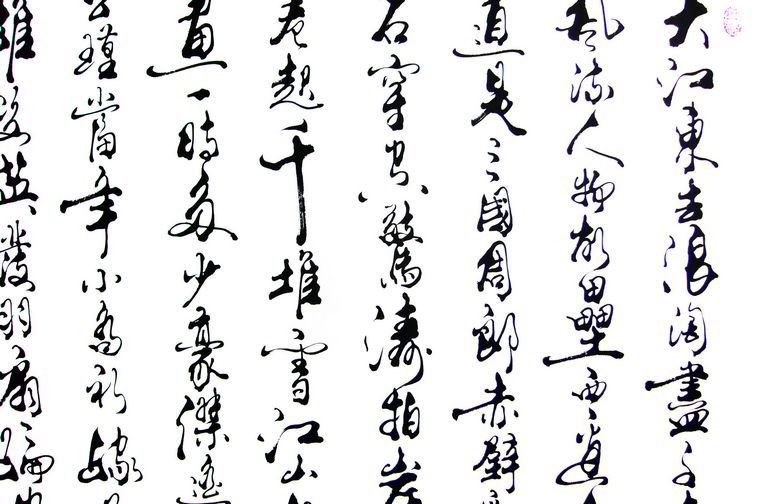 大江東去浪淘盡千
風流人物故壘西邊
道是三國周郎赤壁
石穿空驚濤拍岸
卷起千堆雪江山
畫一時多少豪傑遙
瑾當年小喬初嫁
雄姿英發羽扇綸